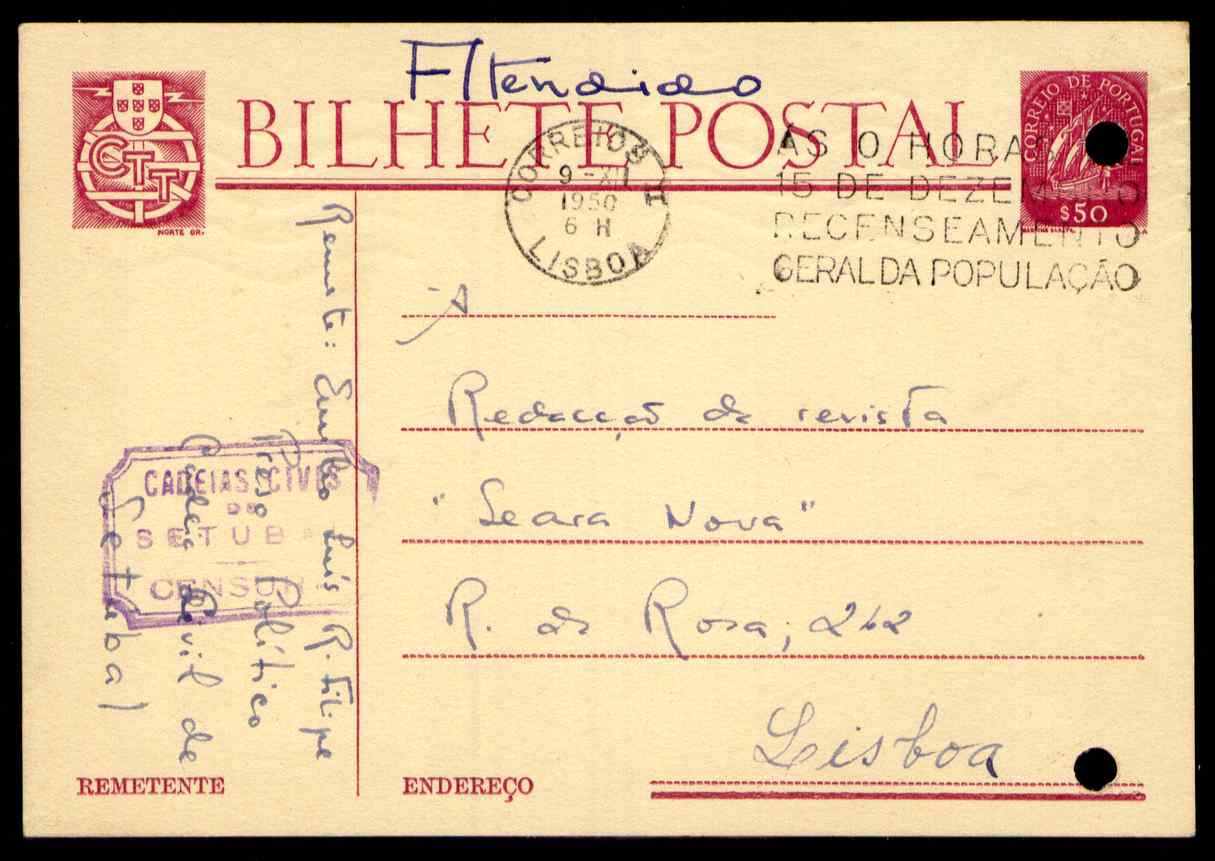 Attendido
BILHETE POSTAL
CTT
NORTE GR.
CORREIO DE PORTUGAL
$50
CORREIOS
9-XII
1950
6 H
LISBOA
ÀS O HORAS
15 DE DEZEMBRO
RECENSEAMENTO
GERAL DA POPULAÇÃO
À
Redacção da revista
"Seara Nova"
R. da Rosa, 242
Lisboa
Remete: Emílio Luís R. Filipe
Preso Político
Cadeia Civil de
Setubal
CADEIAS CIVIS
DE
SETUBA
CENSUR
REMETENTE
ENDEREÇO